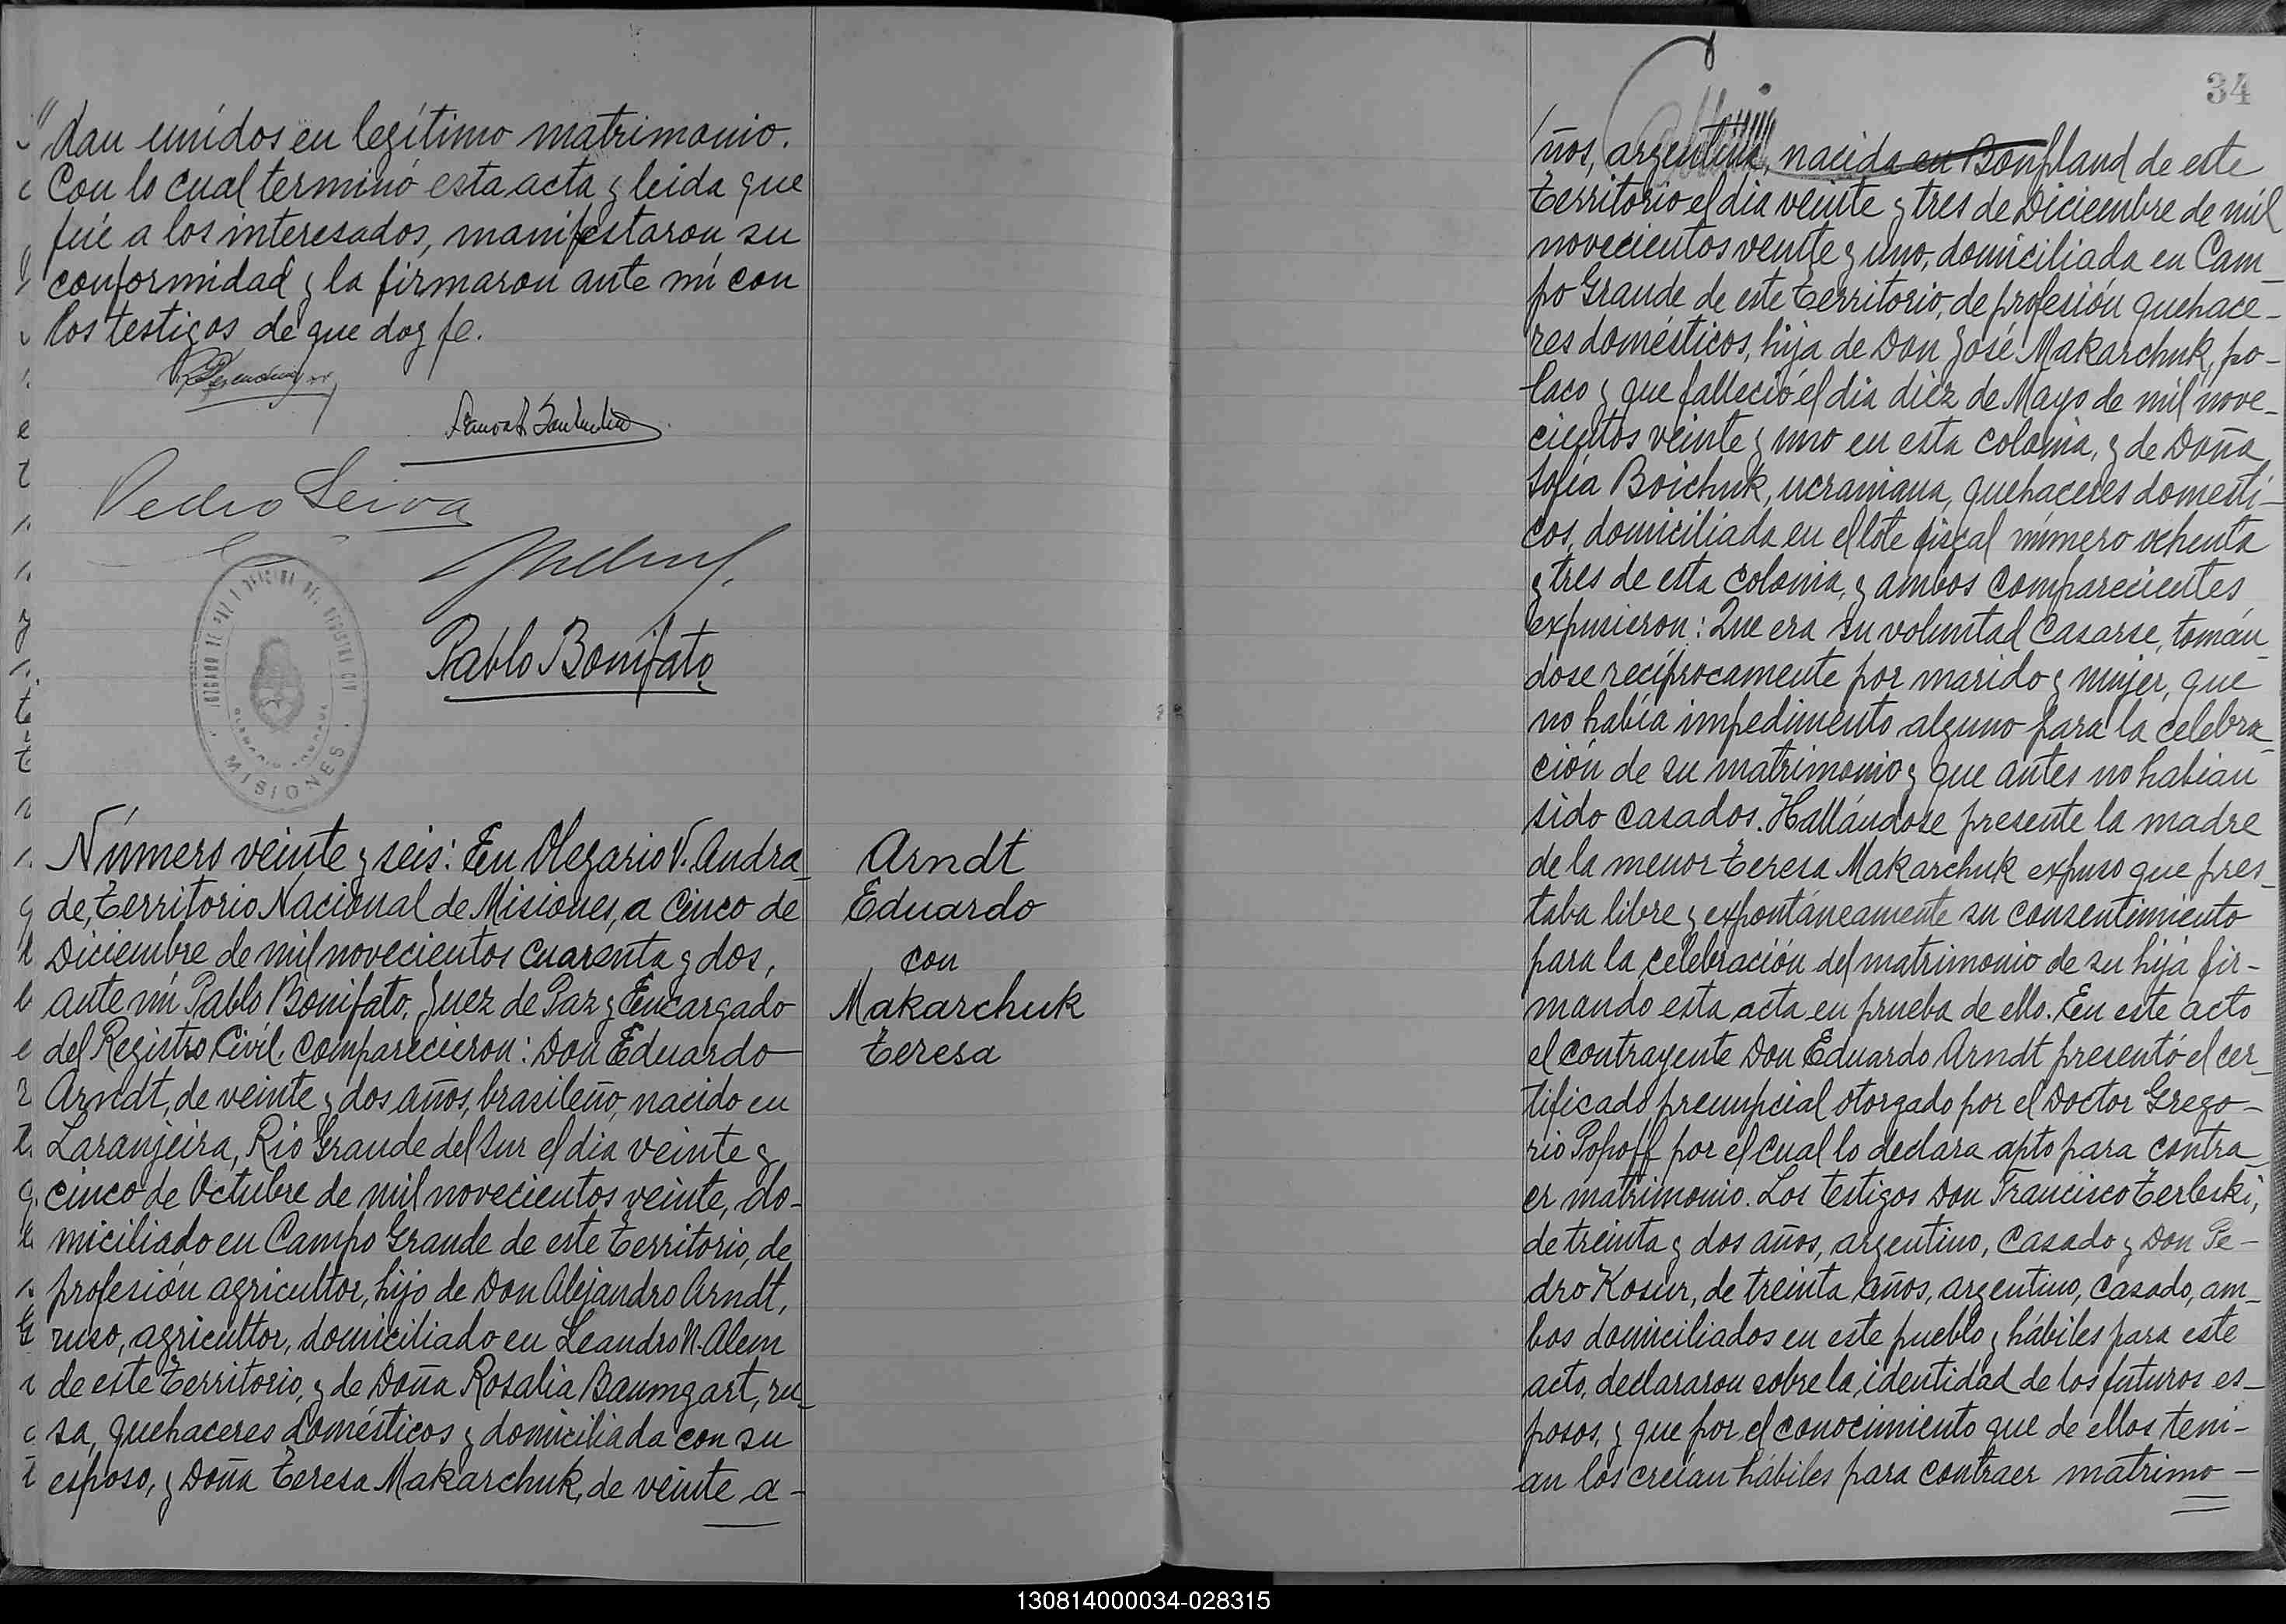 dan unidos en legítimo matrimonio.
Con lo cual terminó esta acta y leida que
fué a los interesados, manifestaron su
conformidad y la firmaron ante mí con
los testigos de que doy fe.
Pedro Leiva
Pablo Bonifato
JUZGADO DE PAZ Y OFICINA DEL REGISTRO CIVIL
MISIONES
Número veinte y seis: En Olegario V. Andra-
de, Territorio Nacional de Misiones, a cinco de
Diciembre de mil novecientos cuarenta y dos,
ante mí Pablo Bonifato, Juez de Paz y Encargado
del Registro Civil comparecieron: Don Eduardo
Arndt, de veinte y dos años, brasileño, nacido en
Laranjeira, Rio Grande del Sur el dia veinte y
cinco de Octubre de mil novecientos veinte, do-
miciliado en Campo Grande de este Territorio, de
profesión agricultor, hijo de Don Alejandro Arndt,
ruso, agricultor, domiciliado en Leandro N. Alem
de este Territorio, y de Doña Rosalia Baumgart, ru-
sa, quehaceres domésticos y domiciliada con su
esposo, y Doña Teresa Makarchuk, de veinte a-
Arndt
Eduardo
con
Makarchuk
Teresa
34
ños, argentina, nacida en Bonpland de este
Territorio el dia veinte y tres de Diciembre de mil
novecientos veinte y uno, domiciliada en Cam-
po Grande de este Territorio, de profesión quehace-
res domésticos, hija de Don José Makarchuk, po-
laco y que falleció el dia diez de Mayo de mil nove-
cientos veinte y uno en esta colonia, y de Doña
Sofia Boichuk, ucraniana, quehaceres domésti-
cos, domiciliada en el lote fiscal número ochenta
y tres de esta colonia, y ambos comparecientes
expusieron: Que era su voluntad casarse, tomán-
dose recíprocamente por marido y mujer, que
no había impedimento alguno para la celebra-
ción de su matrimonio y que antes no habian
sido casados. Hallándose presente la madre
de la menor Teresa Makarchuk expuso que pres-
taba libre y expontáneamente su consentimiento
para la celebración del matrimonio de su hija fir-
mando esta acta en prueba de ello. En este acto
el contrayente Don Eduardo Arndt presentó el cer-
tificado prenupcial otorgado por el Doctor Grego-
rio Popoff por el cual lo declara apto para contra-
er matrimonio. Los testigos Don Francisco Zerbski,
de treinta y dos años, argentino, casado y Don Pe-
dro Kosur, de treinta años, argentino, casado, am-
bos domiciliados en este pueblo y hábiles para este
acto, declararon sobre la identidad de los futuros es-
posos, y que por el conocimiento que de ellos teni-
an los creian hábiles para contraer matrimo-
130814000034-028315